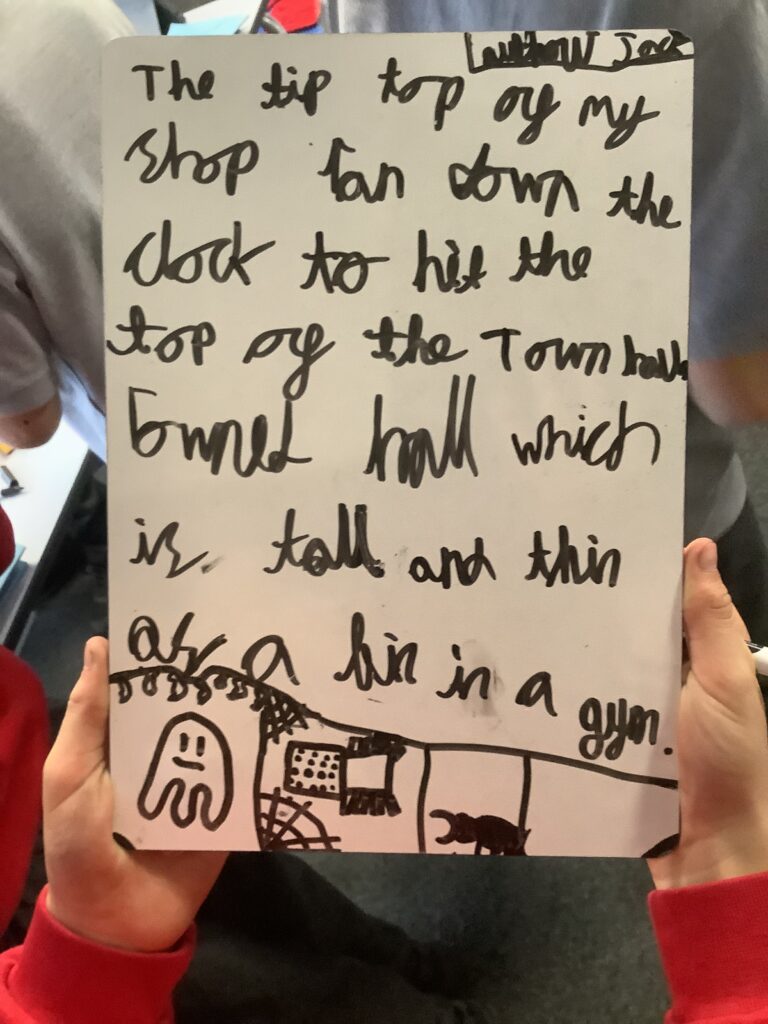 The tip top of my
Shop ran down the
clock to hit the
top of the Town hall
hall which
is tall and thin
as a bin in a
gym.